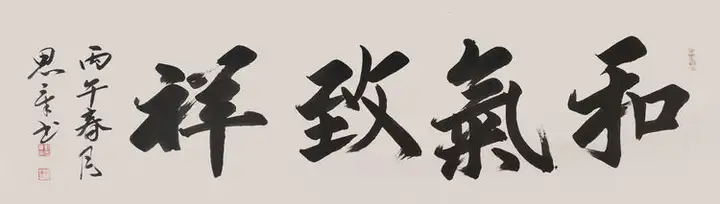 和氣致祥
丙午春月
思童书